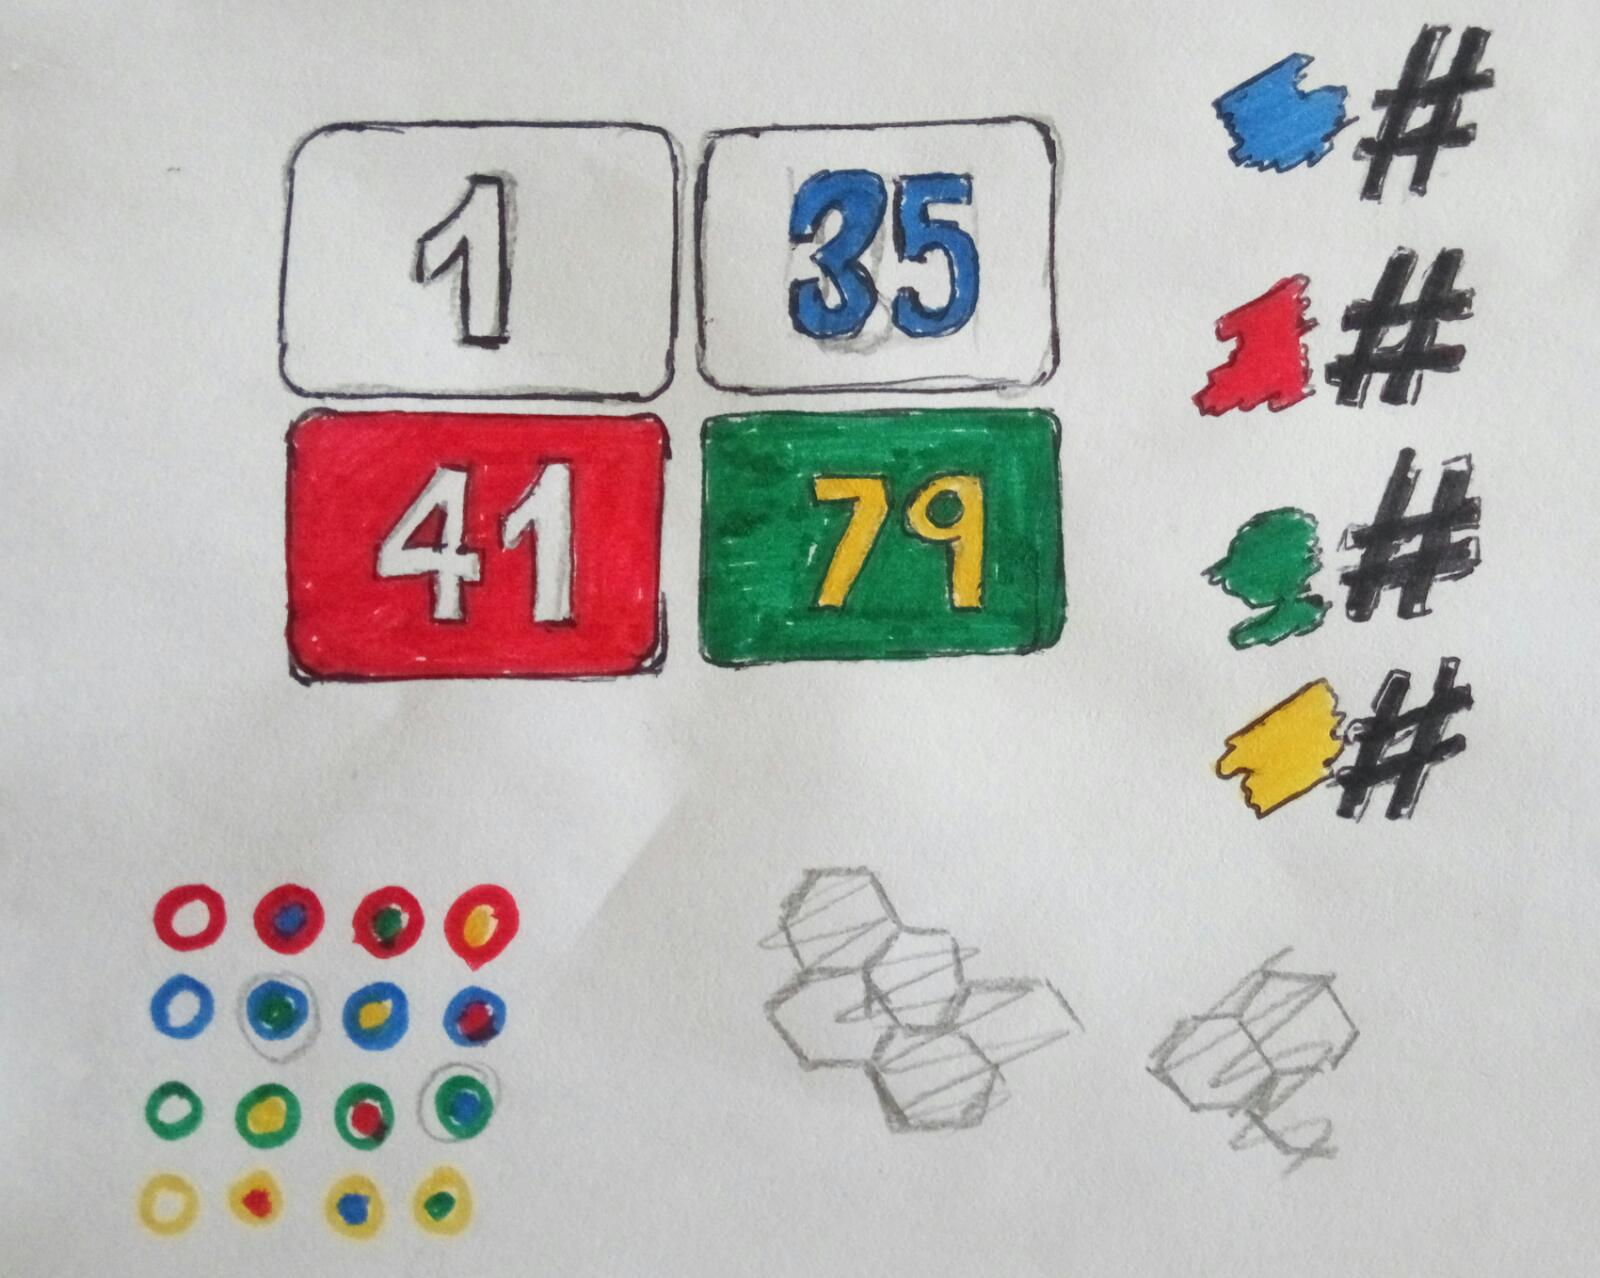 1 35
41 79
#
#
#
#